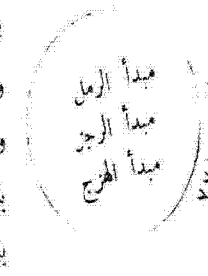 مبدأ الرمل
مبدأ الرجز
مبدأ الهزج